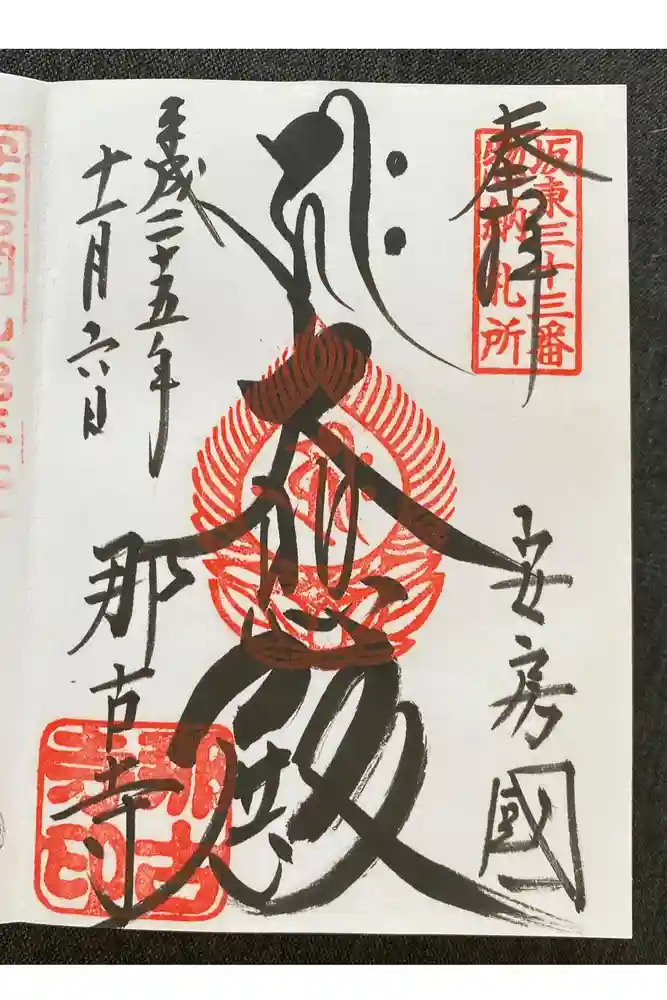 奉拝
坂東三十三番
納札所
安房國
大悲殿
平成二十五年
十一月六日
那古寺
那古
寺印